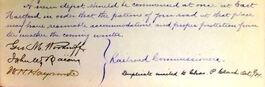 A new depot should be commenced at once at East
Hartford in order that the patrons of your road at that place
may have reasonable accommodation and proper protection from
the weather the coming winter.
Geo. M. Woodruff
John W. Bacon
W. H. Hayward
Railroad Commissioners.
Duplicate mailed to Chas. P. Clark Oct